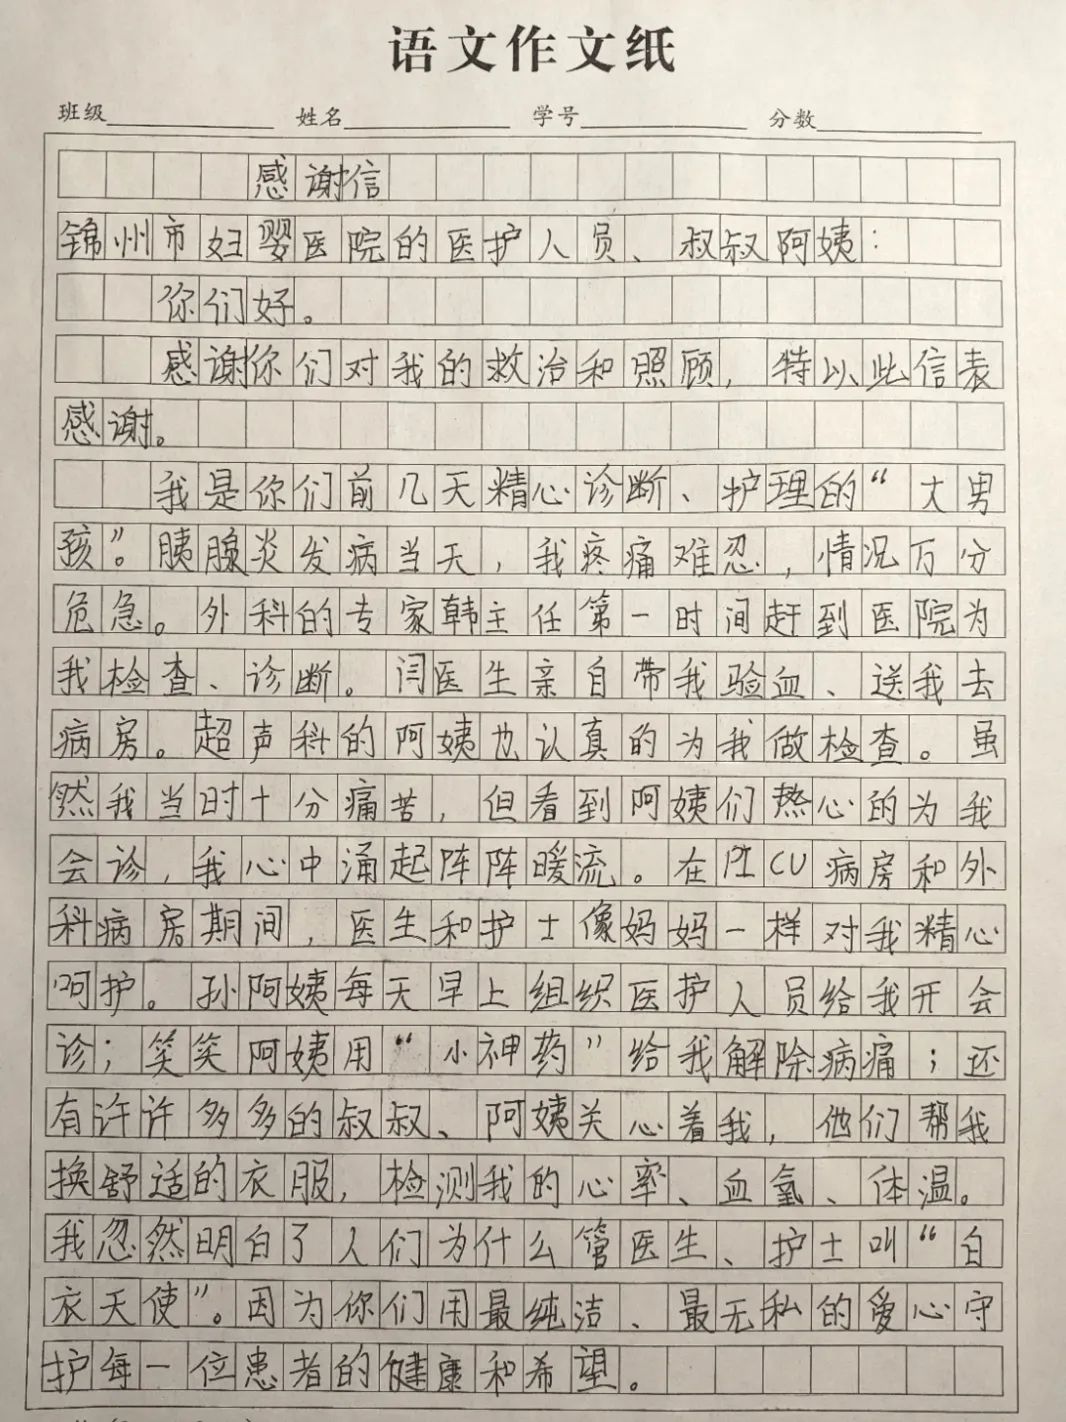 语文作文纸
班级 姓名 学号 分数
感谢信
锦州市妇婴医院的医护人员、叔叔阿姨：
你们好。
感谢你们对我的救治和照顾，特以此信表
感谢。
我是你们前几天精心诊断、护理的“大男
孩”。胰腺炎发病当天，我疼痛难忍，情况万分
危急。外科的专家韩主任第一时间赶到医院为
我检查、诊断。闫医生亲自带我验血、送我去
病房。超声科的阿姨也认真的为我做检查。虽
然我当时十分痛苦，但看到阿姨们热心的为我
会诊，我心中涌起阵阵暖流。在PICU病房和外
科病房期间，医生和护士像妈妈一样对我精心
呵护。孙阿姨每天早上组织医护人员给我开会
诊；笑笑阿姨用“小神药”给我解除病痛；还
有许许多多的叔叔、阿姨关心着我，他们帮我
换舒适的衣服，检测我的心率、血氧、体温。
我忽然明白了人们为什么管医生、护士叫“白
衣天使”。因为你们用最纯洁、最无私的爱心守
护每一位患者的健康和希望。